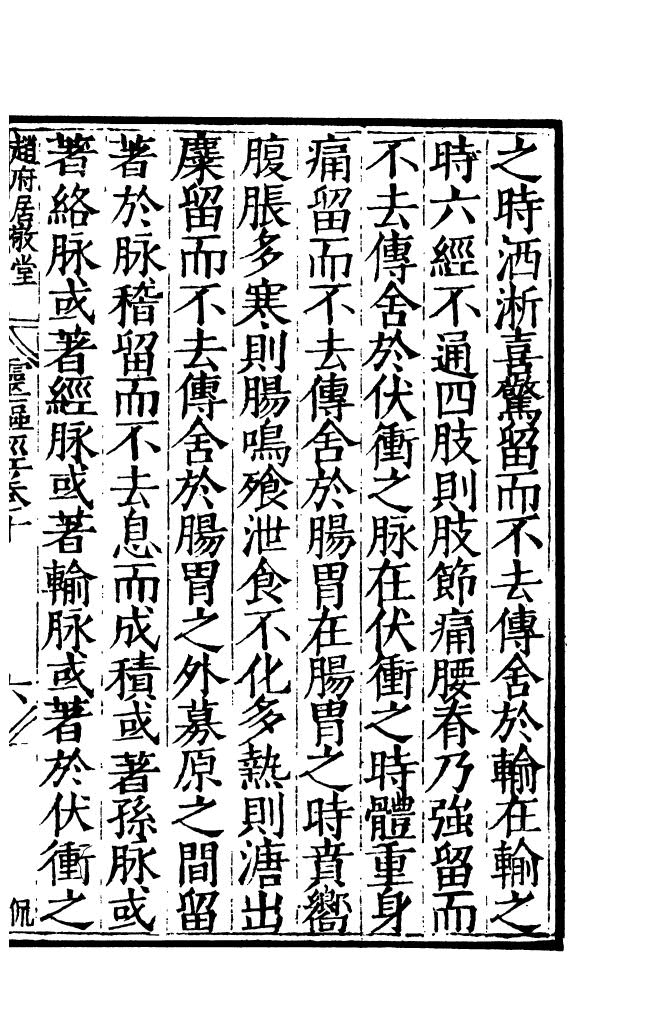 之時洒淅喜驚留而不去傳舍於輸在輸之
時六經不通四肢則肢節痛腰脊乃強留而
不去傳舍於伏衝之脉在伏衝之時體重身
痛留而不去傳舍於腸胃在腸胃之時賁嚮
腹脹多寒則腸鳴飱泄食不化多熱則溏出
麋留而不去傳舍於腸胃之外募原之間留
著於脉稽留而不去息而成積或著孫脉或
著絡脉或著經脉或著輸脉或著於伏衝之
趙府居敬堂 靈樞經卷十 六 侃